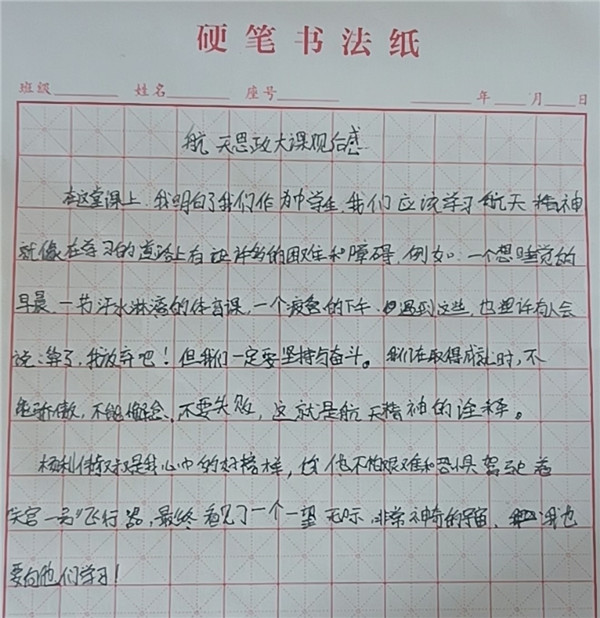 硬笔书法纸
班级 姓名 座号 年 月 日
航天思政大课观后感
在这堂课上，我明白了我们作为中学生，我们应该学习航天精神
就像在学习的道路上有这许多的困难和障碍，例如：一个想睡觉的
早晨，一节汗水淋漓的体育课，一个疲惫的下午，遇到这些，也些许有人会
说：算了，我放弃吧！但我们一定要坚持与奋斗。我们在取得成就时，不
能骄傲，不能偷，不要失败，这就是航天精神的诠释。
杨利伟叔叔是我心中的好榜样，他不怕艰难和恐惧驾驶着
“天宫一号”飞行器，最终看见了一个一望无际，非常神奇的宇宙，我也
要向他们学习！